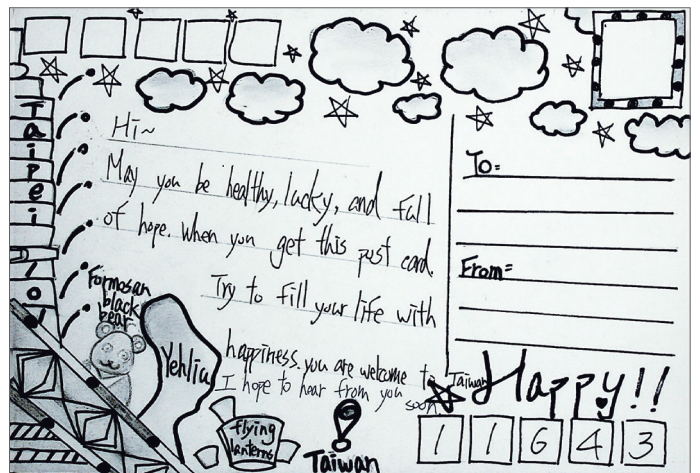 Taipei 101
Hi~
May you be healthy, lucky, and full
of hope. When you get this post card.
Try to fill your life with
happiness. you are welcome to Taiwan
I hope to hear from you soon
To:
From:
Happy!!
Formosan
black
bear
Yehliu
flying
lanterns
Taiwan
11643